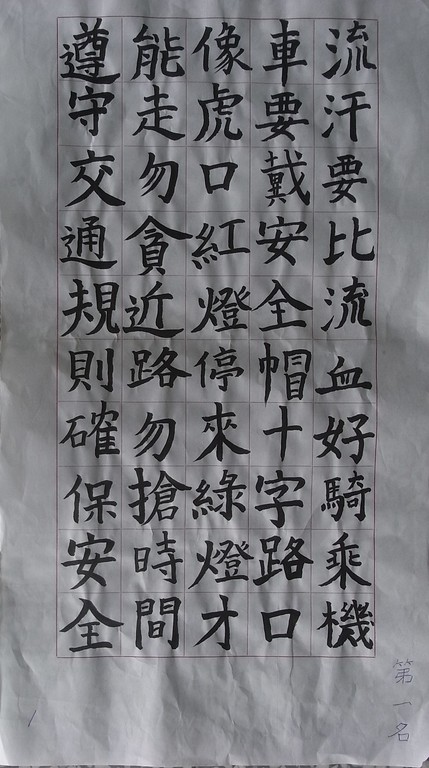 流汗要比流血好騎乘機
車要戴安全帽十字路口
像虎口紅燈停來綠燈才
能走勿貪近路勿搶時間
遵守交通規則確保安全
第一名